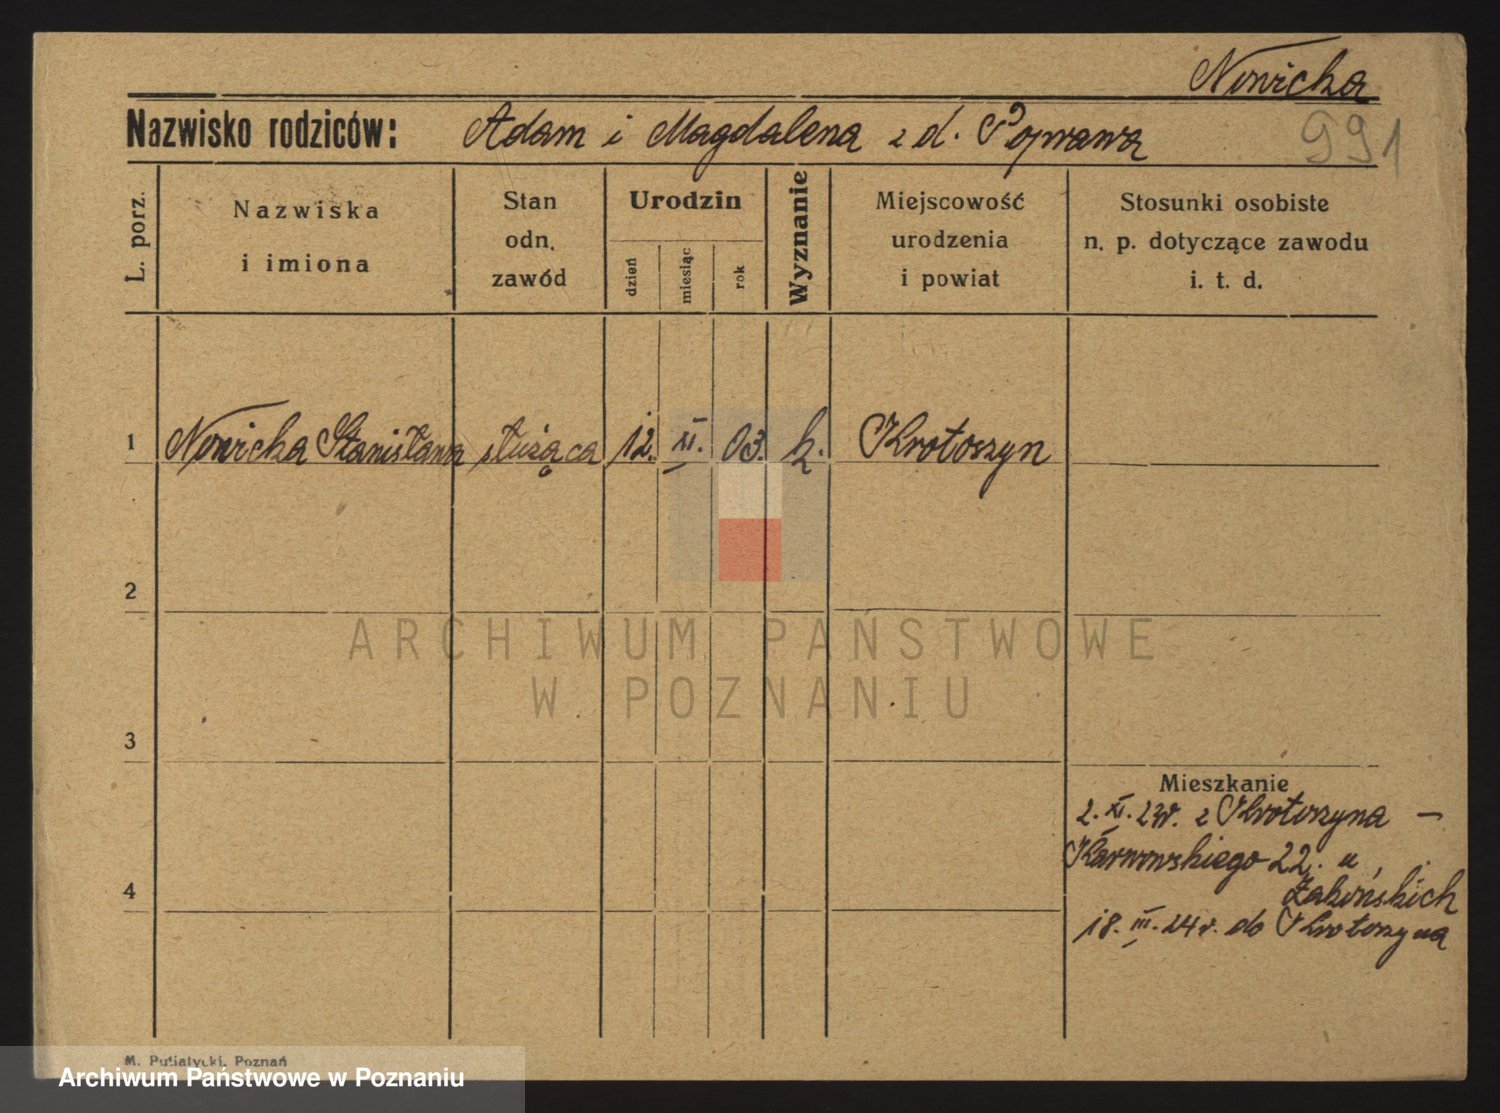 Nowicka
Nazwisko rodziców: Adam i Magdalena z d. Poprawa
991
L. porz.
Nazwiska
i imiona
Stan
odn.
zawód
Urodzin
dzień
miesiąc
rok
Wyznanie
Miejscowość
urodzenia
i powiat
Stosunki osobiste
n. p. dotyczące zawodu
i. t. d.
1 Nowicka Stanisława służąca 12. XI. 03. k. Krotoszyn
2
ARCHIWUM PAŃSTWOWE
W POZNANIU
3
Mieszkanie
2. XI. 23r. z Krotoszyna —
Karwowskiego 22. u
4
18. III. 24r. do Krotoszyna
M. Putiatycki, Poznań
Archiwum Państwowe w Poznaniu